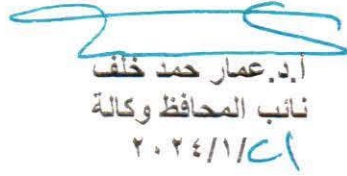 أ.د.عمار حمد خلف
نائب المحافظ وكالة
٢٠٢٤/١/٢١